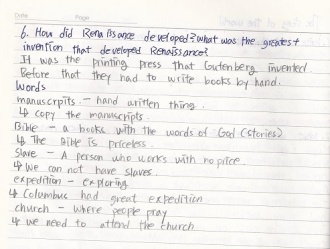 Date Page
6. How did Renaissance developed? what was the greatest
invention that developed Renaissance?
It was the printing press that Gutenberg invented.
Before that they had to write books by hand.
Words
manuscrpits - hand written thing.
↳ copy the manuscripts.
Bible - a books with the words of God (stories)
↳ The Bible is priceless.
Slave - A person who works with no price.
↳ We can not have slaves.
expedition - exploring
↳ Columbus had great expedition
church - where people pray
↳ we need to attend the church